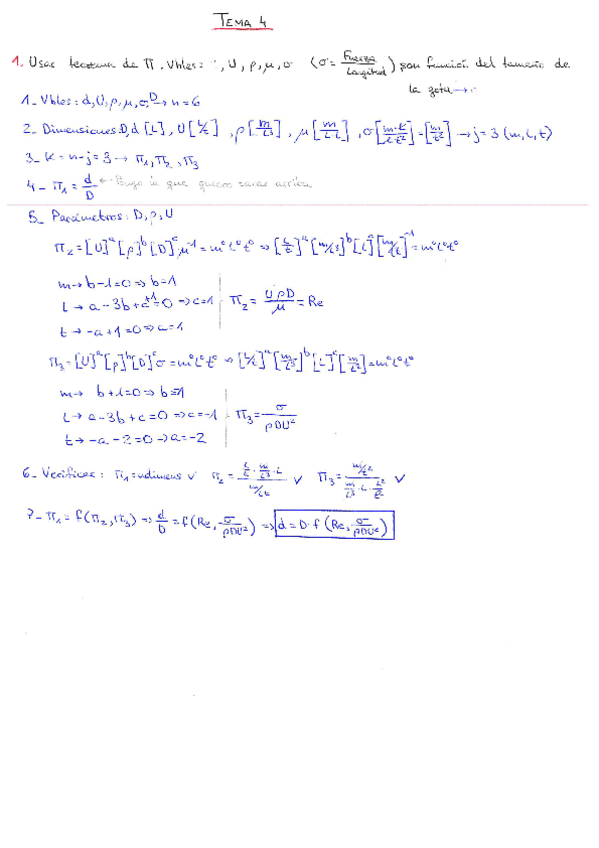 TEMA 4
1. Usar teorema de Π. Vbles: , U, ρ, μ, σ (σ = Fuerza/Longitud) son función del tamaño de
la gota →
1_ Vbles: d, U, ρ, μ, σ, D → n = 6
2_ Dimensiones D, d [L], U [L/t], ρ [m/L³], μ [m/L·t], σ [m·K/L·t²] = [m/t²] → j = 3 (m, L, t)
3_ K = n - j = 3 → Π₁, Π₂, Π₃
4_ Π₁ = d/D ← Pongo la que quiero sacar arriba
5_ Parámetros: D, ρ, U
Π₂ = [U]ᵃ [ρ]ᵇ [D]ᶜ μ⁻¹ = m⁰L⁰t⁰ ⇒ [L/t]ᵃ [m/L³]ᵇ [L]ᶜ [m/Lt]⁻¹ = m⁰L⁰t⁰
m → b - 1 = 0 ⇒ b = 1
L → a - 3b + c + 1 = 0 ⇒ c = 1 Π₂ = UρD/μ = Re
t → -a + 1 = 0 ⇒ a = 1
Π₃ = [U]ᵃ [ρ]ᵇ [D]ᶜ σ = m⁰L⁰t⁰ ⇒ [L/t]ᵃ [m/L³]ᵇ [L]ᶜ [m/t²] = m⁰L⁰t⁰
m → b + 1 = 0 ⇒ b = -1
L → a - 3b + c = 0 ⇒ c = -1 Π₃ = σ/ρDU²
t → -a - 2 = 0 ⇒ a = -2
6_ Verificar: Π₁ = adimens ✓ Π₂ = (L/t · m/L³ · L)/(m/Lt) ✓ Π₃ = (m/t²)/(m/L³ · L · L²/t²) ✓
7_ Π₁ = f(Π₂, Π₃) ⇒ d/D = f(Re, σ/ρDU²) ⇒ d = D · f(Re, σ/ρDU²)